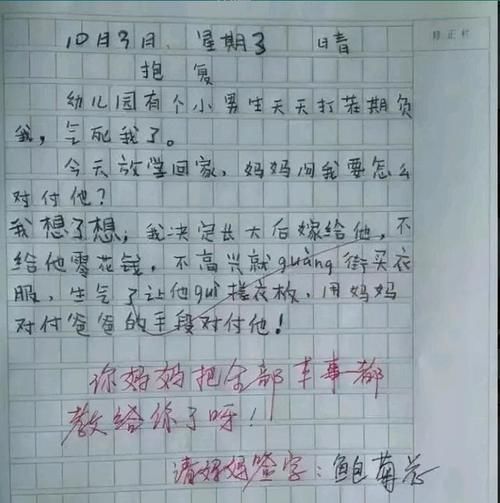 10月3日、星期3 晴
抱复
幼儿园有个小男生天天打茬期负
我，气死我了。
今天放学回家，妈妈问我要怎么
对付他？
我想了想，我决定长大后嫁给他，不
给他零花钱，不高兴就guàng街买衣
服，生气了让他guì搓衣板，用妈妈
对付爸爸的手段对付他！
你妈妈把全部本事都
教给你了呀！
请妈妈签字：鲍菊芯
修正栏